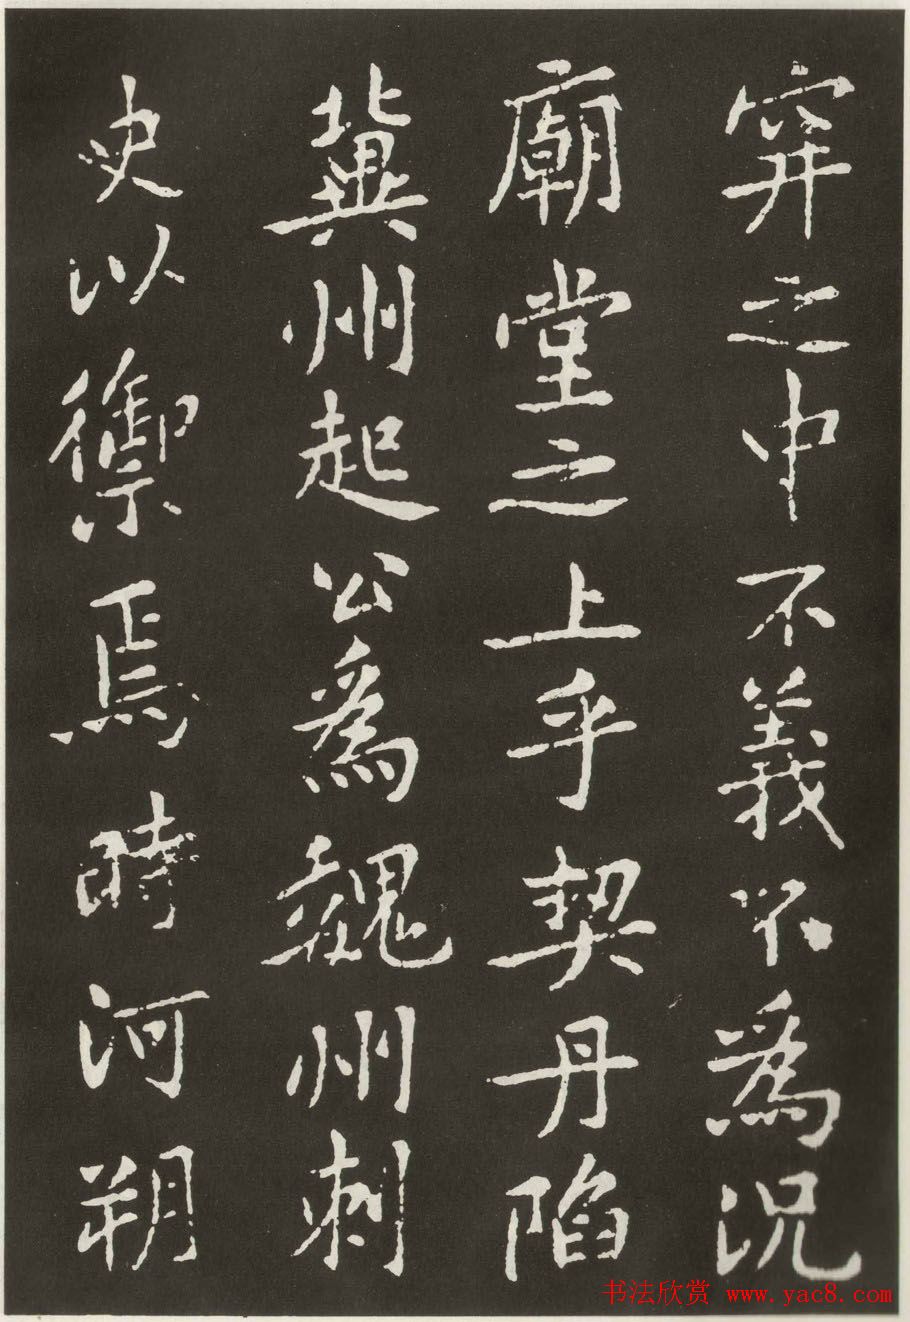 穽之中不義不為況
廟堂之上乎契丹陷
冀州起公為魏州刺
史以禦焉時河朔
书法欣赏 www.yac8.com